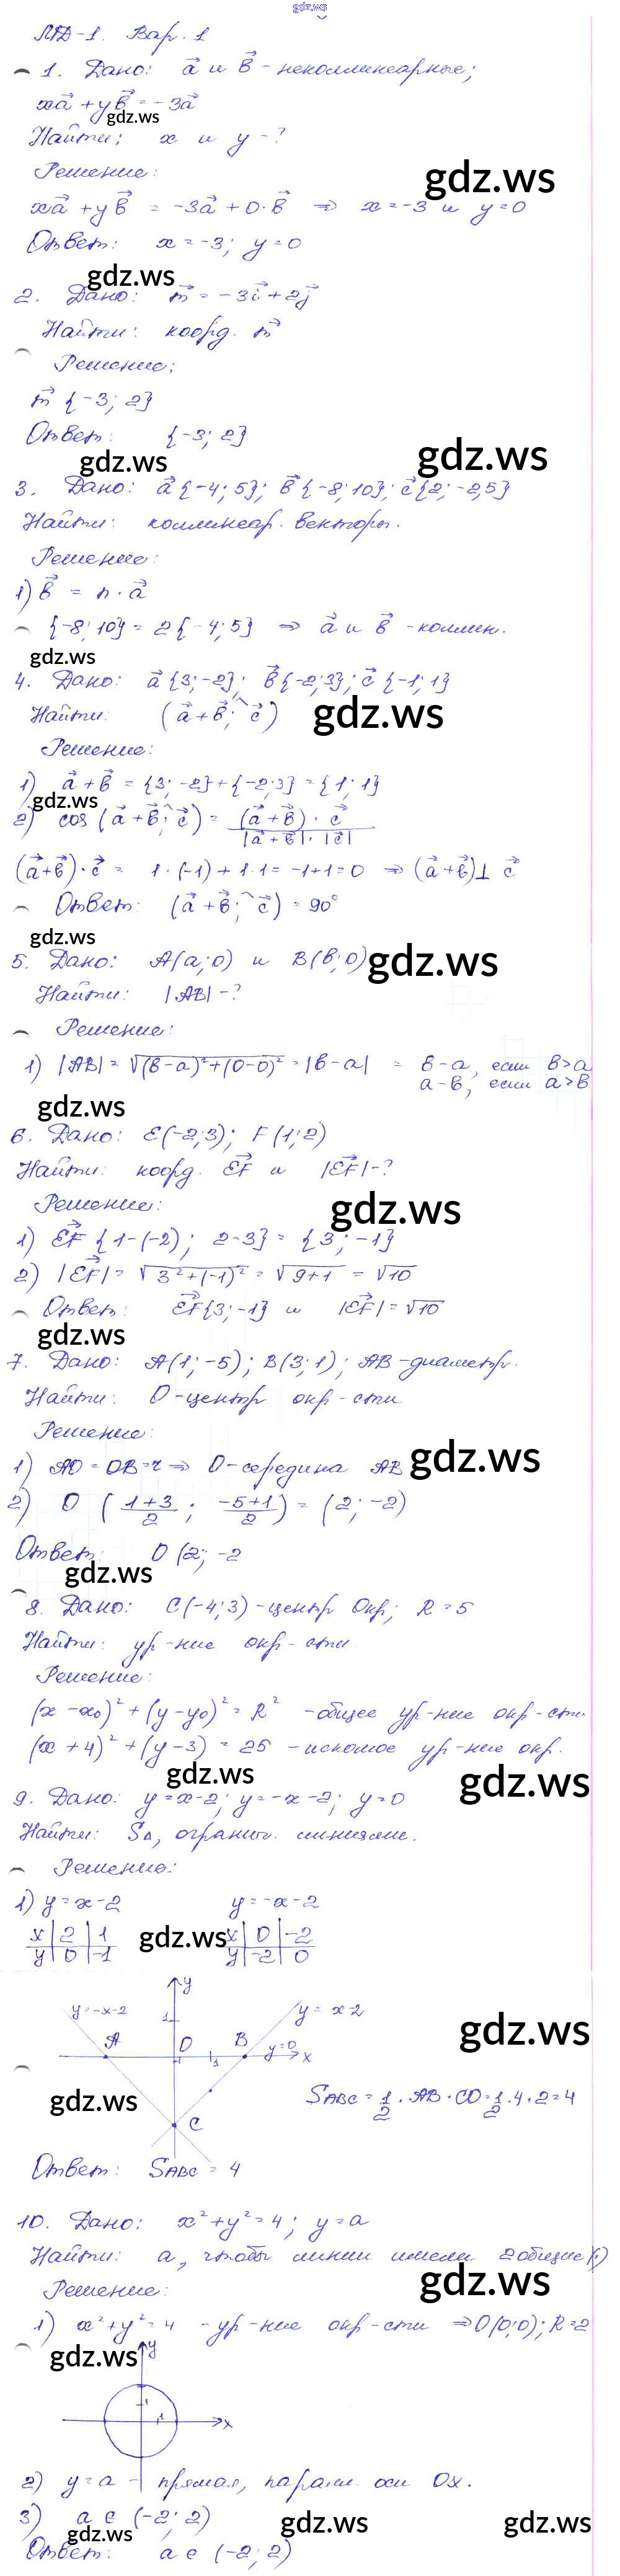 gdz.ws
МД-1. Вар. 1
1. Дано: a⃗ и b⃗ - неколлинеарные;
xa⃗ + yb⃗ = -3a⃗
gdz.ws
Найти: x и y - ?
Решение:
gdz.ws
xa⃗ + yb⃗ = -3a⃗ + 0·b⃗ ⇒ x = -3 и y = 0
Ответ: x = -3; y = 0
gdz.ws
2. Дано: m⃗ = -3i⃗ + 2j⃗
Найти: коорд. m⃗
Решение:
m⃗ {-3; 2}
Ответ: {-3; 2}
gdz.ws gdz.ws
3. Дано: a⃗{-4; 5}; b⃗{-8; 10}; c⃗{2; -2,5}
Найти: коллинеар. векторы.
Решение:
1) b⃗ = n · a⃗
{-8; 10} = 2{-4; 5} ⇒ a⃗ и b⃗ - коллин.
gdz.ws
4. Дано: a⃗{3; -2}; b⃗{-2; 3}; c⃗{-1; 1}
Найти: (a⃗ + b⃗; ^ c⃗)
gdz.ws
Решение:
1) a⃗ + b⃗ = {3; -2} + {-2; 3} = {1; 1}
gdz.ws
2) cos (a⃗ + b⃗; ^ c⃗) = (a⃗ + b⃗) · c⃗ / |a⃗ + b⃗| · |c⃗|
(a⃗ + b⃗) · c⃗ = 1 · (-1) + 1 · 1 = -1 + 1 = 0 ⇒ (a⃗ + b⃗) ⊥ c⃗
Ответ: (a⃗ + b⃗; ^ c⃗) = 90°
gdz.ws
5. Дано: A(a; 0) и B(b; 0)
gdz.ws
Найти: |AB| - ?
Решение:
1) |AB| = √(b-a)²+(0-0)² = |b-a| = b-a, если b>a
a-b, если a>b
gdz.ws
6. Дано: E(-2; 3); F(1; 2)
Найти: коорд. EF⃗ и |EF⃗| - ?
Решение:
gdz.ws
1) EF⃗ {1-(-2); 2-3} = {3; -1}
2) |EF⃗| = √3²+(-1)² = √9+1 = √10
Ответ: EF⃗{3; -1} и |EF⃗| = √10
gdz.ws
7. Дано: A(1; -5); B(3; 1); AB - диаметр.
Найти: O - центр окр-сти
Решение:
gdz.ws
1) AO = OB = r ⇒ O - середина AB
2) O (1+3/2; -5+1/2) = (2; -2)
Ответ: O (2; -2
gdz.ws
8. Дано: C(-4; 3) - центр Окр; R = 5
Найти: ур-ние окр-сти
Решение:
(x - x₀)² + (y - y₀)² = R² - общее ур-ние окр-сти.
(x + 4)² + (y - 3) = 25 - искомое ур-ние окр.
gdz.ws gdz.ws
9. Дано: y = x-2; y = -x-2; y = 0
Найти: S△, огранич. линиями.
Решение:
1) y = x-2 y = -x-2
x | 2 | 1 x | 0 | -2
y | 0 | -1 y | -2 | 0
gdz.ws
y
y = -x-2 1 y = x-2
gdz.ws
A O B y=0
1 x
gdz.ws
SABC = 1/2 · AB · CO = 1/2 · 4 · 2 = 4
C
Ответ: SABC = 4
10. Дано: x² + y² = 4; y = a
Найти: a, чтобы линии имели 2 общие (·)
Решение:
gdz.ws
1) x² + y² = 4 - ур-ние окр-сти ⇒ O(0; 0); R = 2
gdz.ws
y
1
1 x
2) y = a - прямая, паралл. оси Ox.
3) a ∈ (-2; 2)
gdz.ws gdz.ws gdz.ws
Ответ: a ∈ (-2; 2)